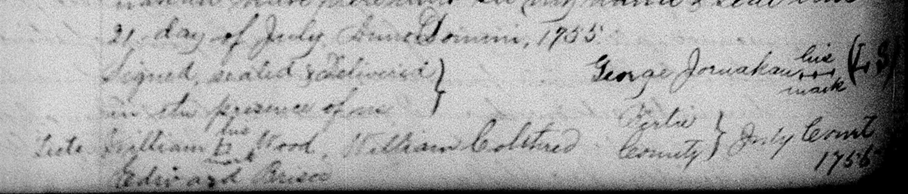 have hereunto set my hand & seal this
21 day of July Anno Domini, 1755
Signed, sealed & Delivered }
in the presence of us
George Jornakan his mark (L S)
Teste William his mark Wood, William Colthred
Edward Brisco
Bertie County } July Court 1756